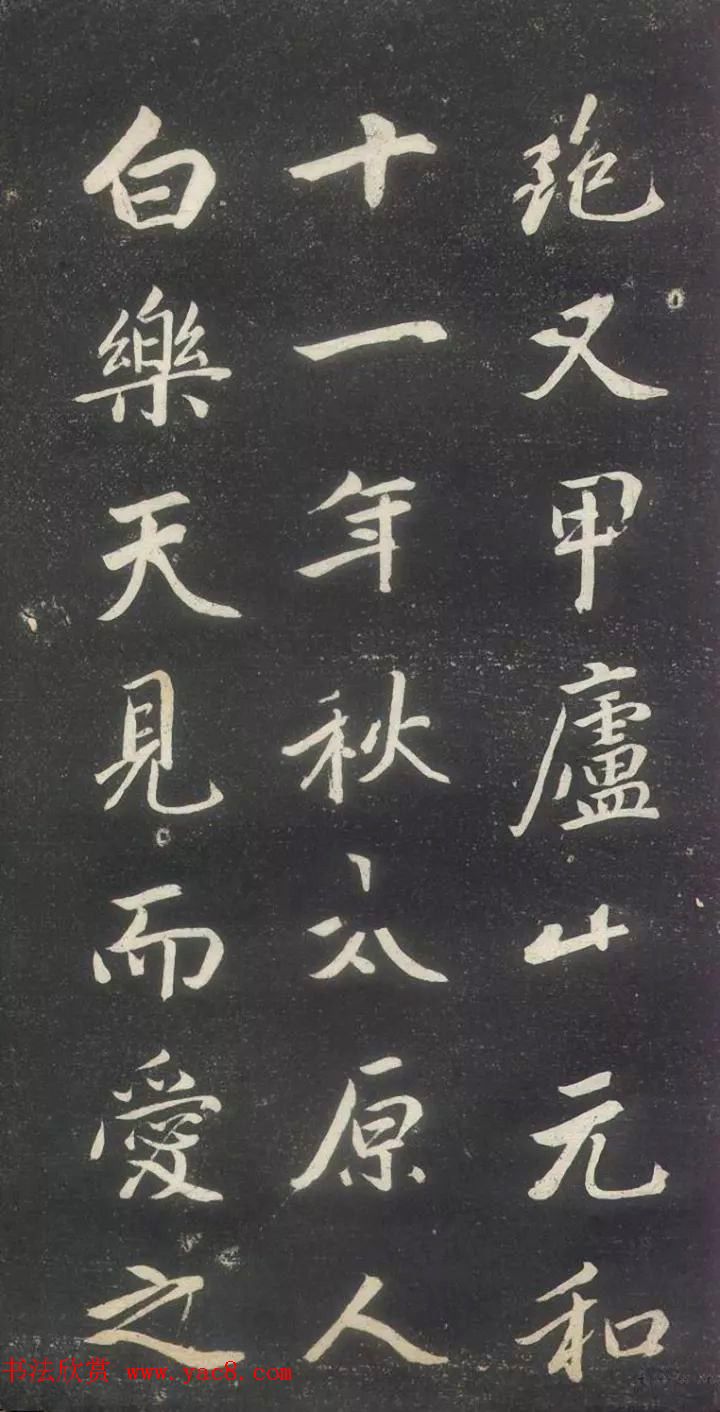 絶又甲廬山元和
十一年秋太原人
白樂天見而愛之
书法欣赏 www.yac8.com